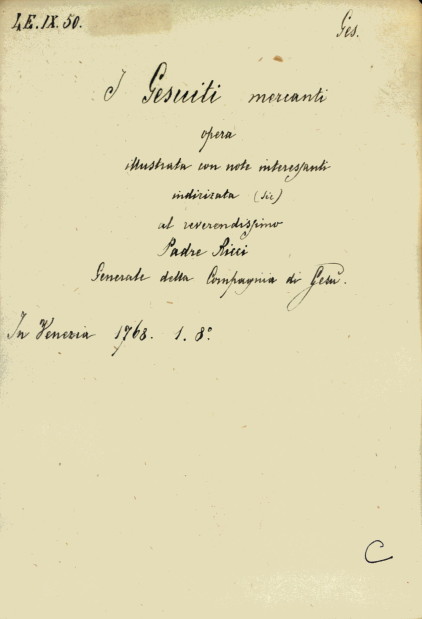 4E.IX.50.
Ges.
I Gesuiti mercanti
opera
illustrata con note interessanti
indirizata (sic)
al reverendissimo
Padre Ricci
Generale della Compagnia di Gesù.
In Venezia 1768. 1. 8°
C